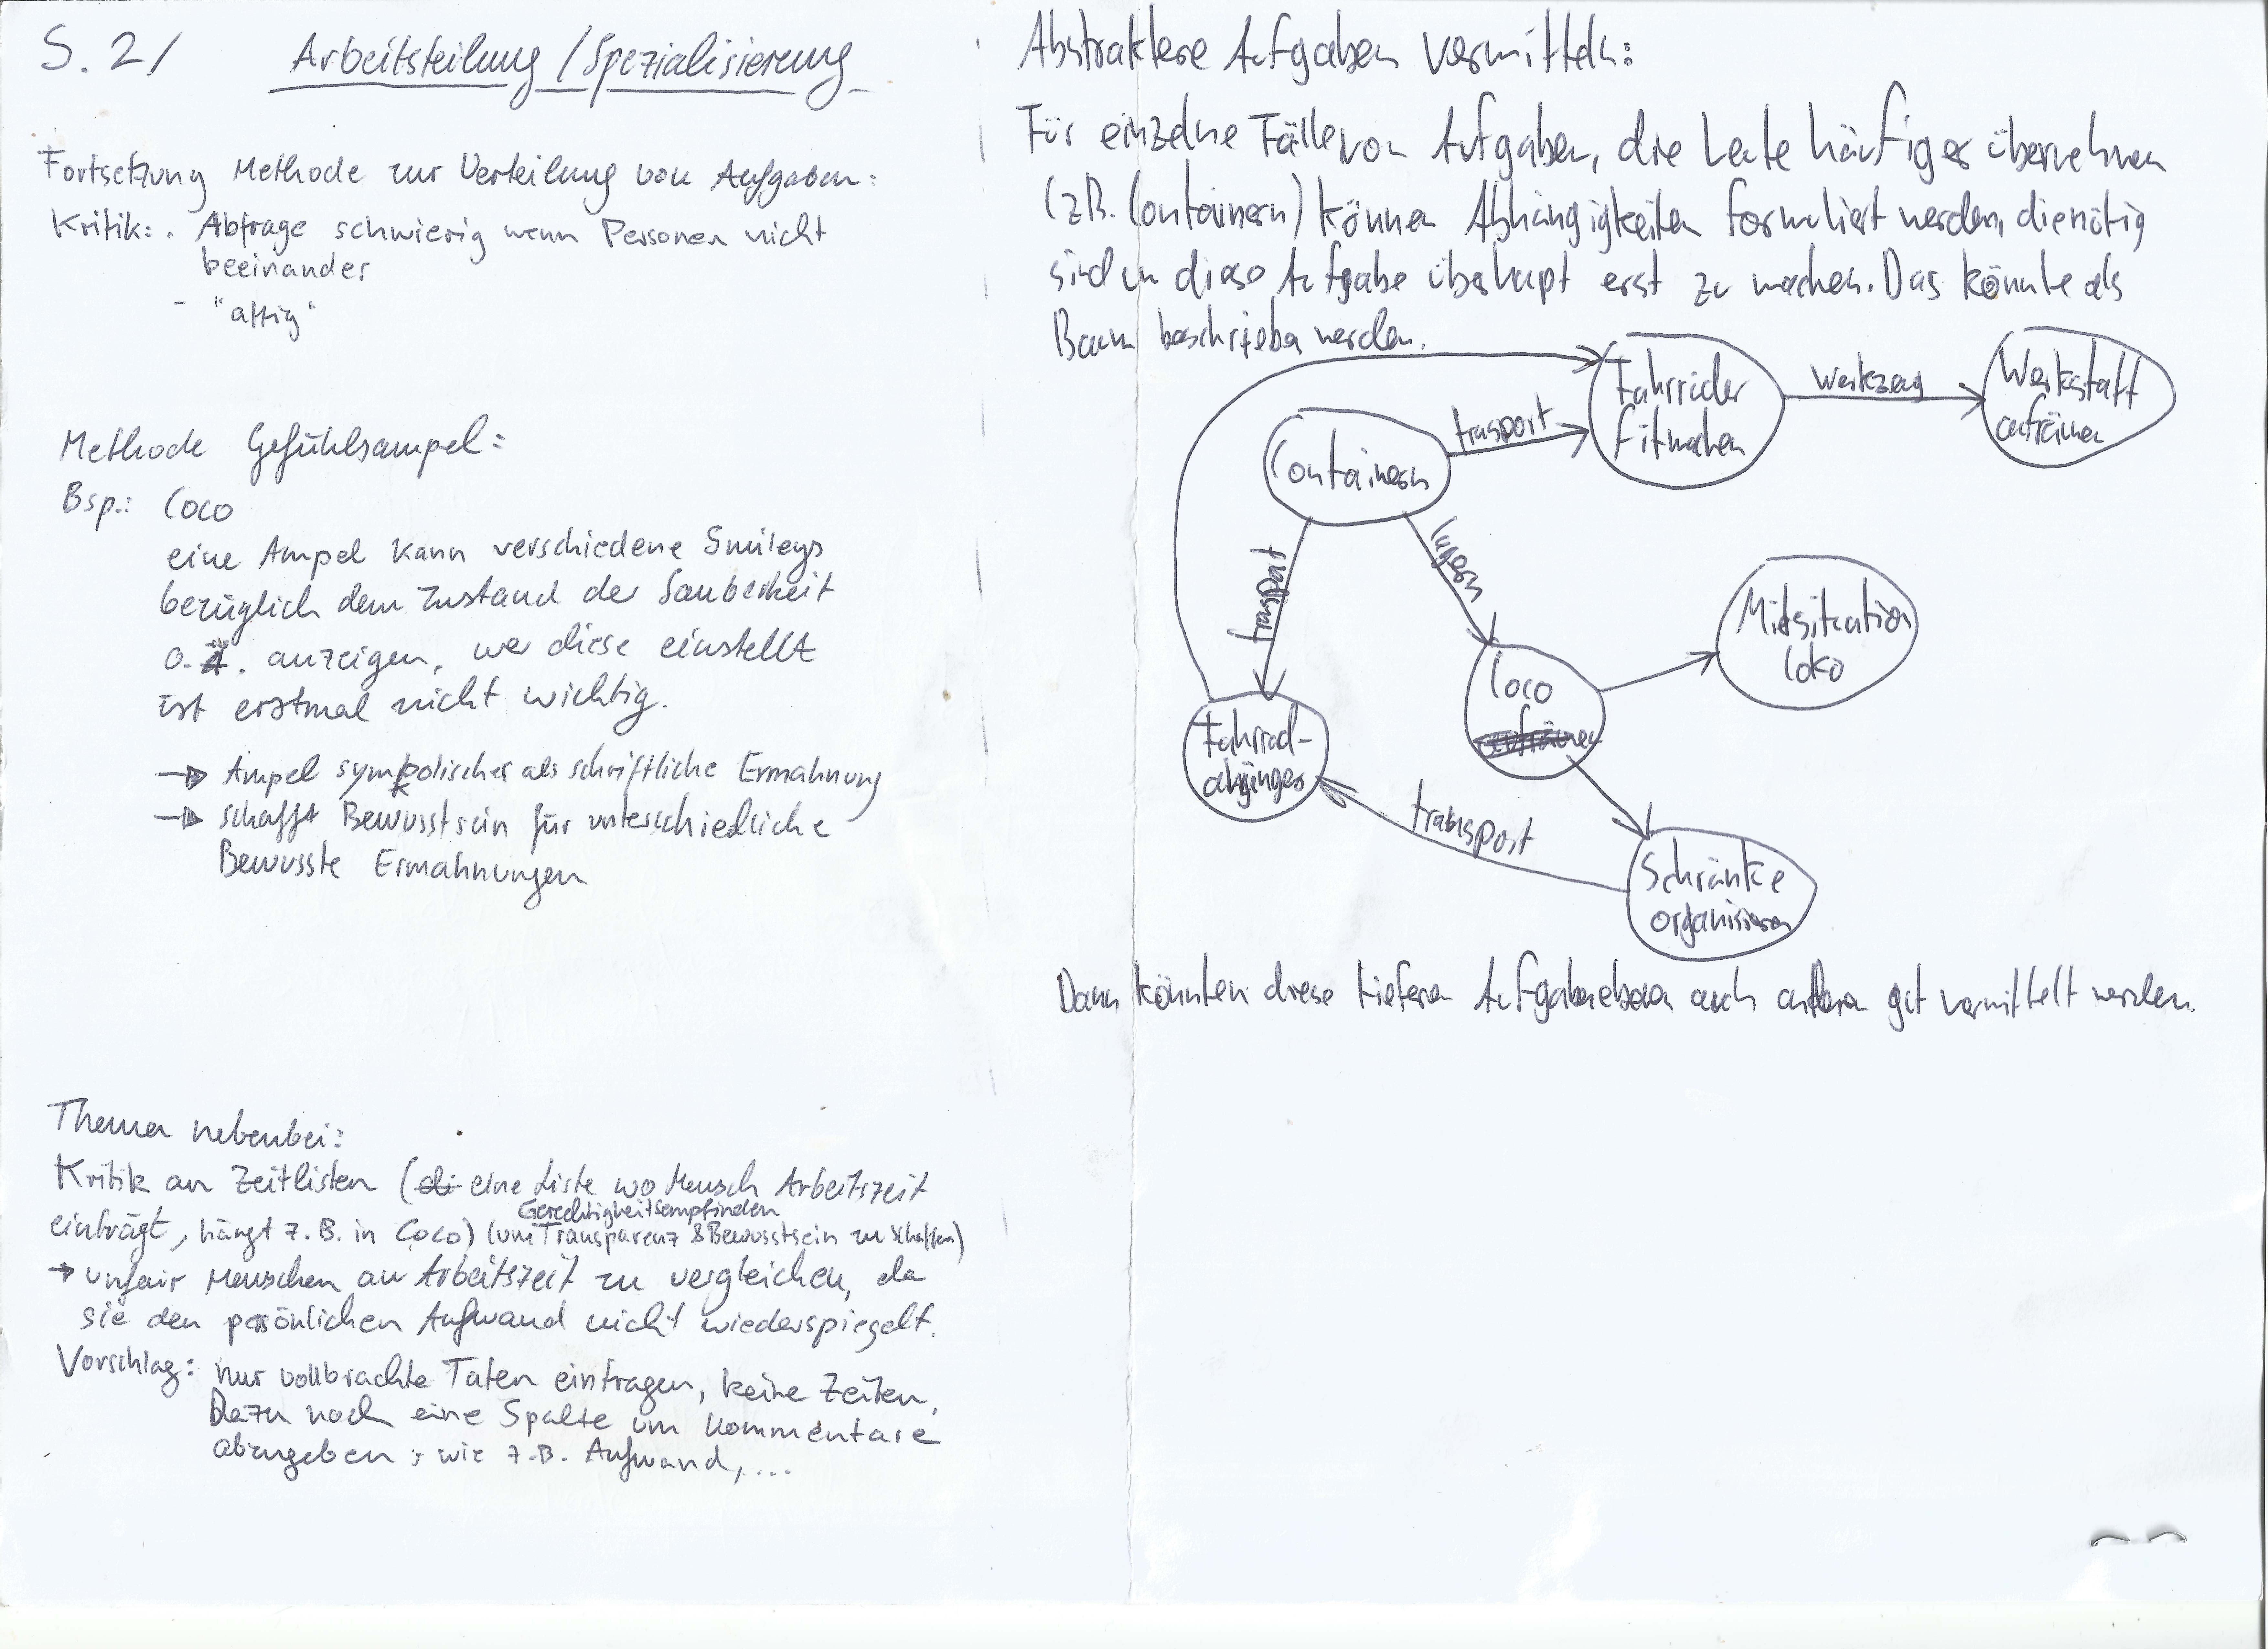 S. 2/ Arbeitsteilung / Spezialisierung
Fortsetzung Methode zur Verteilung von Aufgaben:
Kritik: . Abfrage schwierig wenn Personen nicht
beeinander
- "affig"
Methode Gefühlsampel:
Bsp.: Coco
eine Ampel kann verschiedene Smileys
bezüglich dem Zustand der Sauberkeit
o.Ä. anzeigen, wer diese einstellt
ist erstmal nicht wichtig.
→ Ampel symbolischer als schriftliche Ermahnung
→ schafft Bewusstsein für unterschiedliche
Bewusste Ermahnungen
Thema nebenbei:
Kritik an Zeitlisten (eine Liste wo Mensch Arbeitszeit
Gerechtigkeitsempfinden
einträgt, hängt z.B. in Coco) (um Transparenz & Bewusstsein zu schaffen)
→ unfair Menschen an Arbeitszeit zu vergleichen, da
sie den persönlichen Aufwand nicht wiederspiegelt.
Vorschlag: nur vollbrachte Taten eintragen, keine Zeiten,
Dazu noch eine Spalte um Kommentare
abzugeben, wie z.B. Aufwand,....
Abstraktere Aufgaben vermitteln:
Für einzelne Fälle von Aufgaben, die Leute häufiger übernehmen
(z.B. Containern) können Abhängigkeiten formuliert werden, die nötig
sind um diese Aufgabe überhaupt erst zu machen. Das könnte als
Baum beschrieben werden.
Fahrräder
fitmachen
Werkzeug
Werkstatt
aufräumen
Containern
trasport
transport
lagern
Mietsituation
Loko
Coco
aufräumen
Fahrrad-
ahänger
transport
Schränke
organisieren
Dann könnten diese tieferen Aufgabenebenen auch anderen gut vermittelt werden.